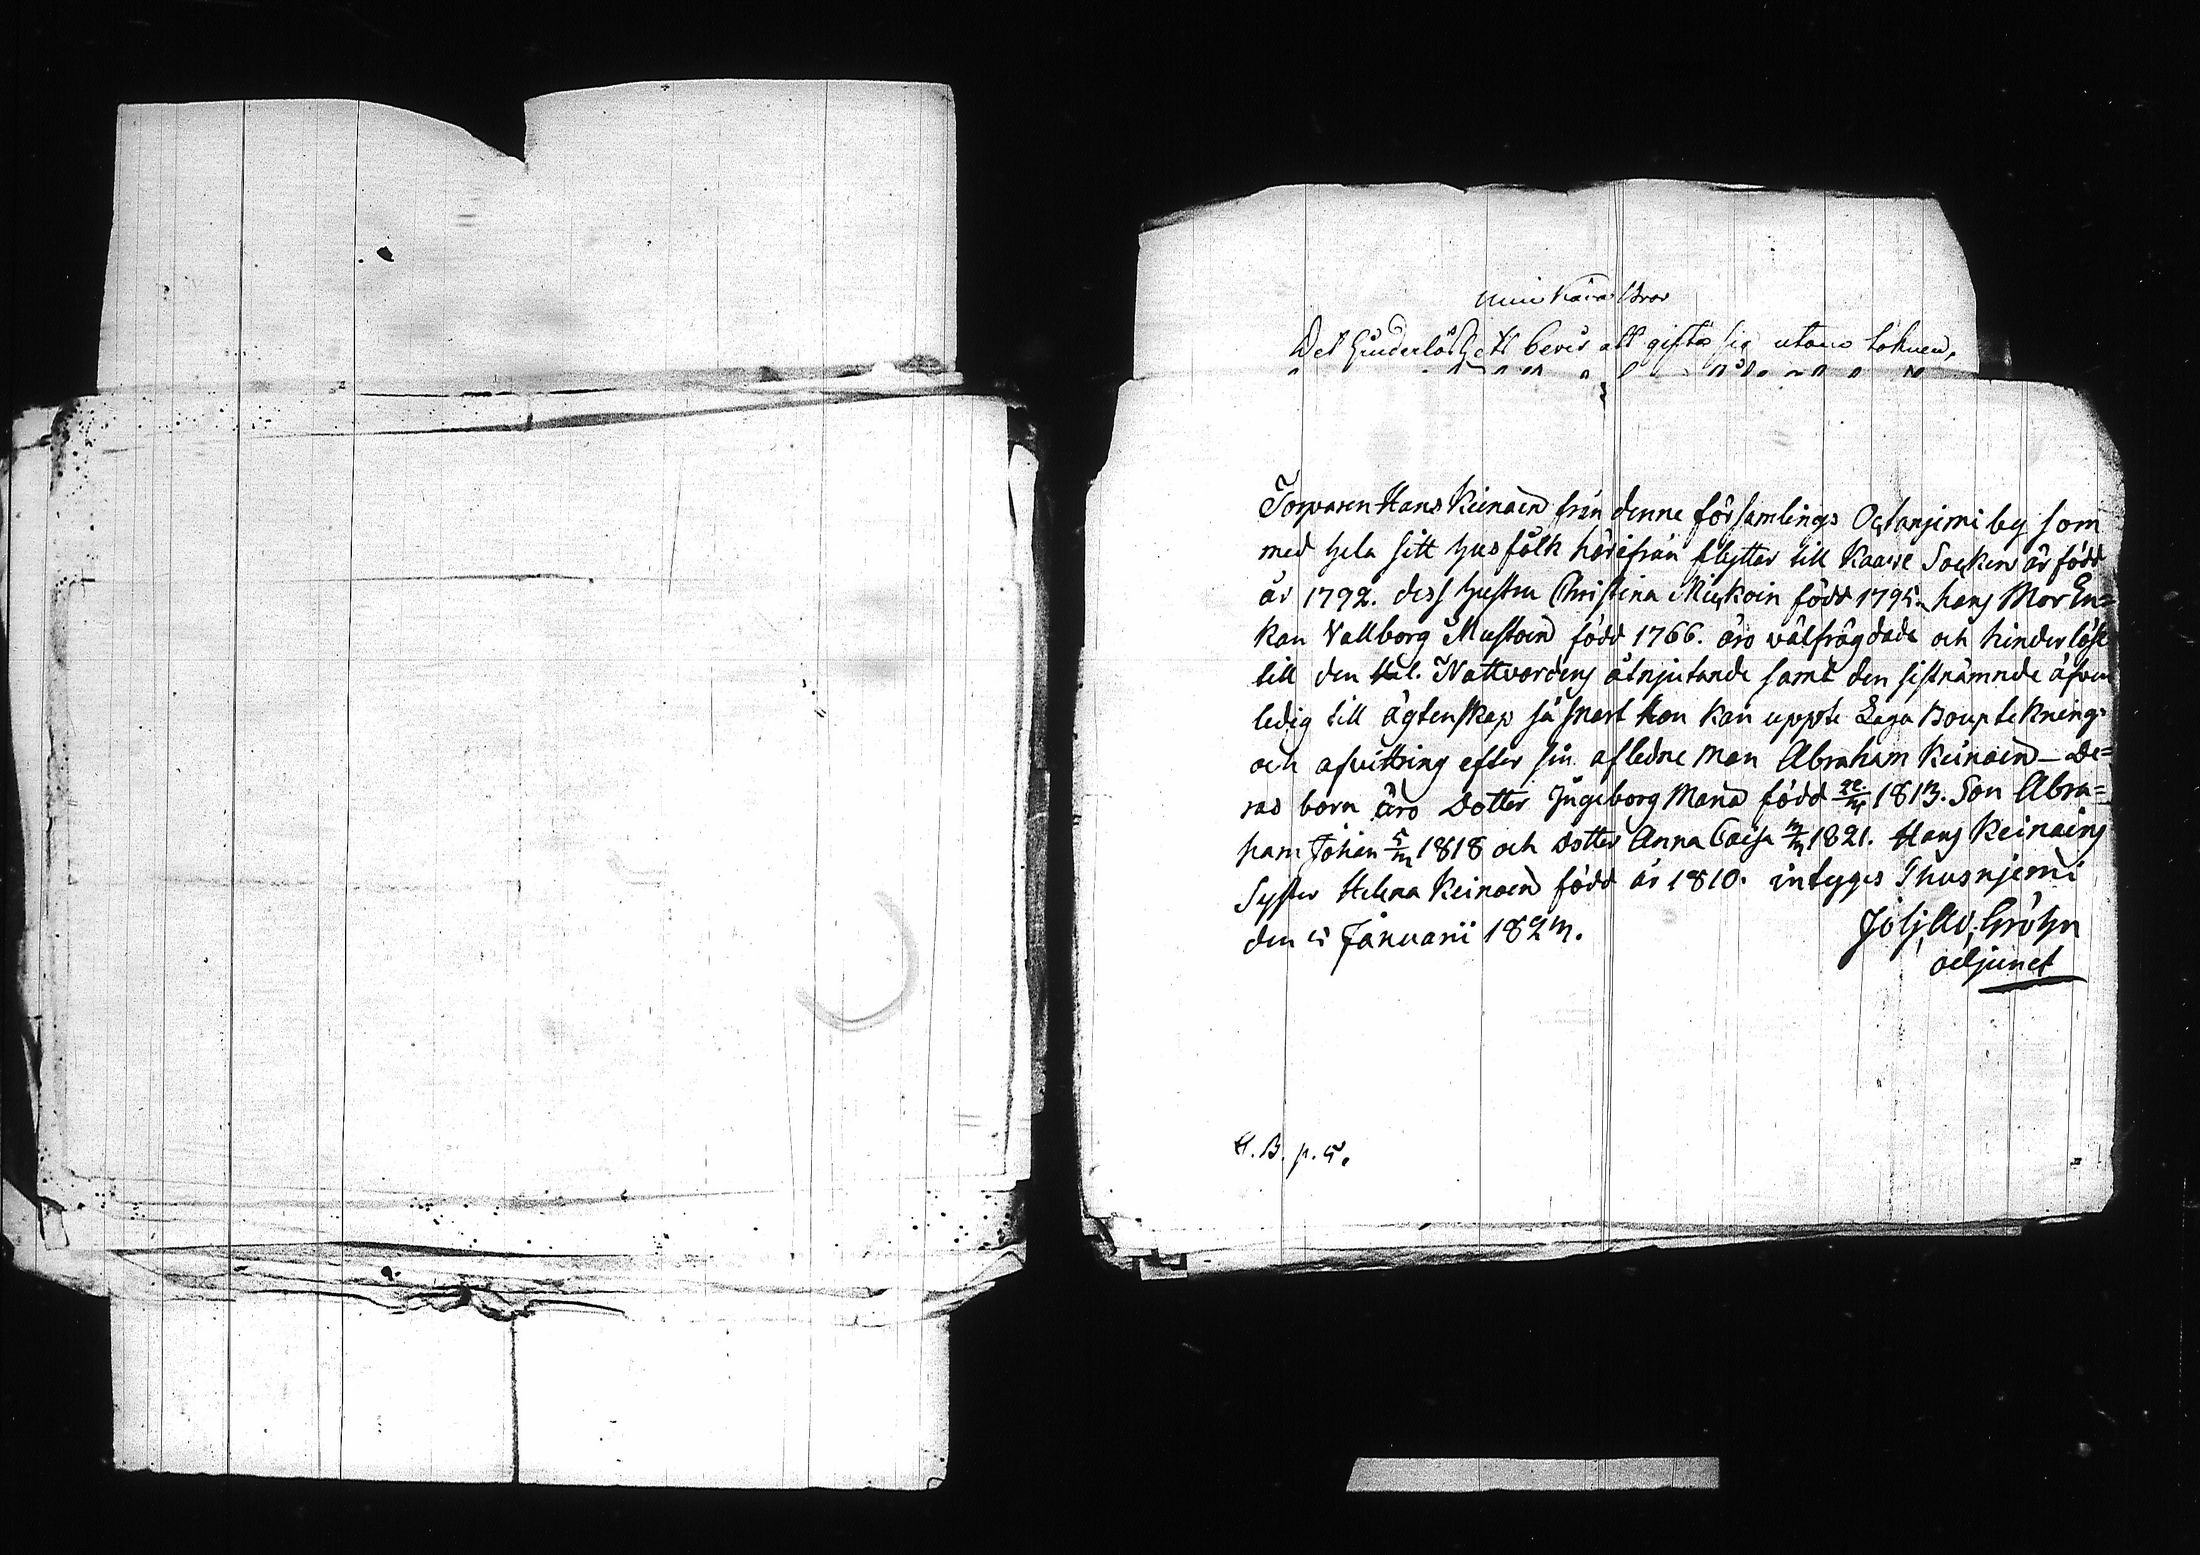 min kära Bror
Det hinderlöshets bevis att gifta sig utom Soknen,
Torparen Hans Keinoin från denne församlings Ogtanjemi by som
med hela sitt husfolk härifrån flyttar till Kaawi Soeken är född
år 1792. dess hustru Christina Miskoin född 1795. hans Mor En=
kan Vallborg Mustoin född 1766. äro wälfrägdade och hinderlöse
till den Hel. Nattvardens åtnjutande samt den sistnämnde äfven
ledig till ägtenskap så snart Hon kan uppte Laga Bouptekning
och afvittring efter sin aflidne man Abraham Keinoin – De=
ras barn äro Dotter Ingeborg Maria född 1813. Son Abra=
ham Johan 1818 och dotter Anna Caisa 1821. Hans Keinoins
Syster Helena Keinoin född år 1810. intygas Thusnjemi
den 5 Januarii 1823.
Joh; Ad; Gröhn
adjunct
H. B. p. 5.